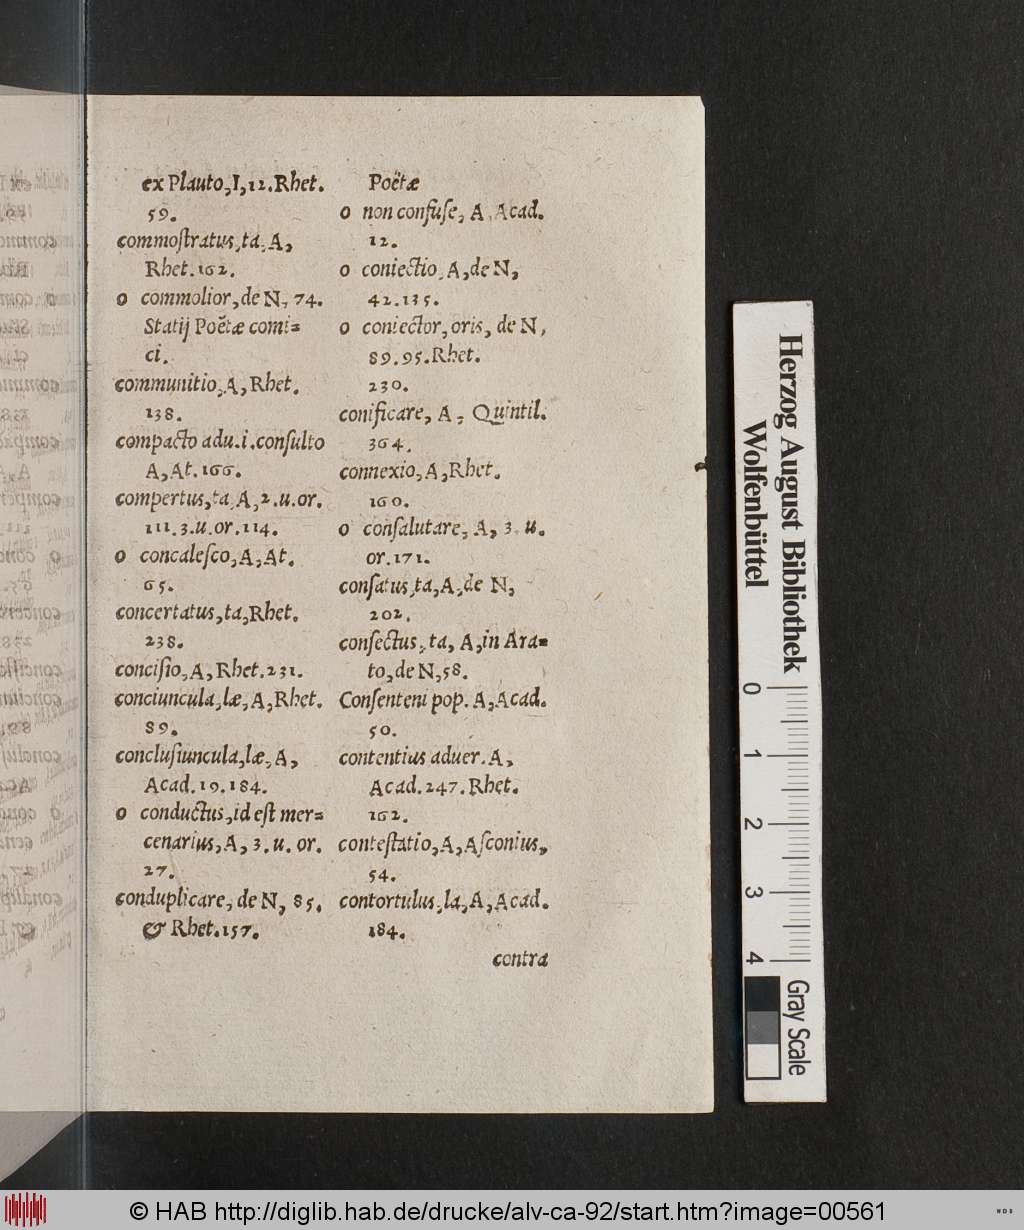 ex Plauto, I, 12. Rhet.
59.
commoſtratus, ta, A,
Rhet. 162.
o commolior, de N, 74.
Statij Poëtæ comi=
ci.
communitio, A, Rhet.
138.
compacto adu. i. conſulto
A, At. 166.
compertus, ta, A, 2. u. or.
111. 3. u. or. 114.
o concaleſco, A, At.
65.
concertatus, ta, Rhet.
238.
conciſio, A, Rhet. 231.
conciuncula, læ, A, Rhet.
89.
concluſiuncula, læ, A,
Acad. 19. 184.
o conductus, id eſt mer=
cenarius, A, 3. u. or.
27.
conduplicare, de N, 85.
& Rhet. 157.
Poëtæ
o non confuſe, A, Acad.
12.
o coniectio, A, de N,
42. 135.
o coniector, oris, de N,
89. 95. Rhet.
230.
conificare, A, Quintil.
364.
connexio, A, Rhet.
160.
o conſalutare, A, 3. u.
or. 171.
conſatus, ta, A, de N,
202.
conſectus, ta, A, in Ara=
to, de N, 58.
Conſenteni pop. A, Acad.
50.
contentius aduer. A,
Acad. 247. Rhet.
162.
conteſtatio, A, Aſconius,
54.
contortulus, la, A, Acad.
184.
contra
Herzog August Bibliothek
Wolfenbüttel
0 1 2 3 4
Gray Scale
© HAB http://diglib.hab.de/drucke/alv-ca-92/start.htm?image=00561